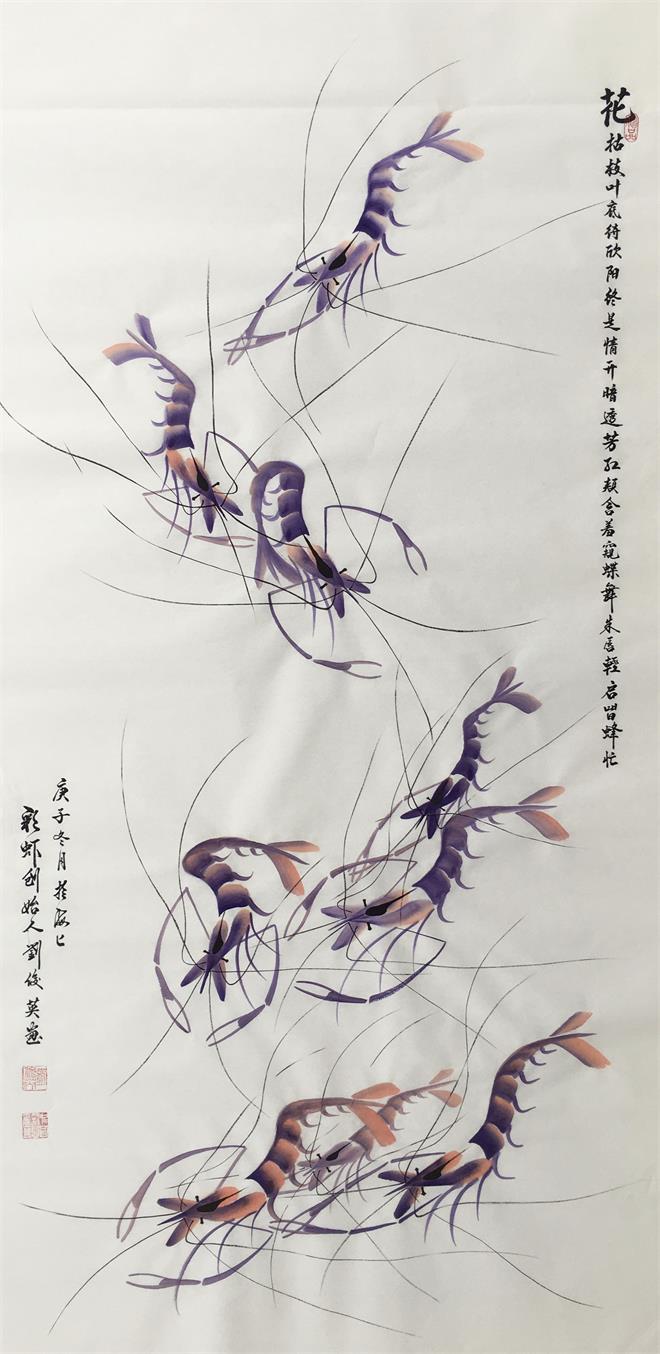 花
枯枝叶底待欣阳终是情开暗透芳红颊含羞窥蝶舞朱唇輕启留蜂忙
庚子冬月於海上
彩虾创始人劉俊英画